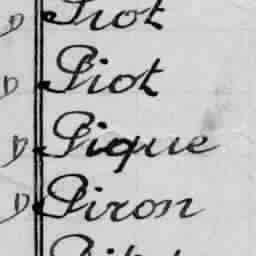 D Piot
D Piot
D Pique
D Piron